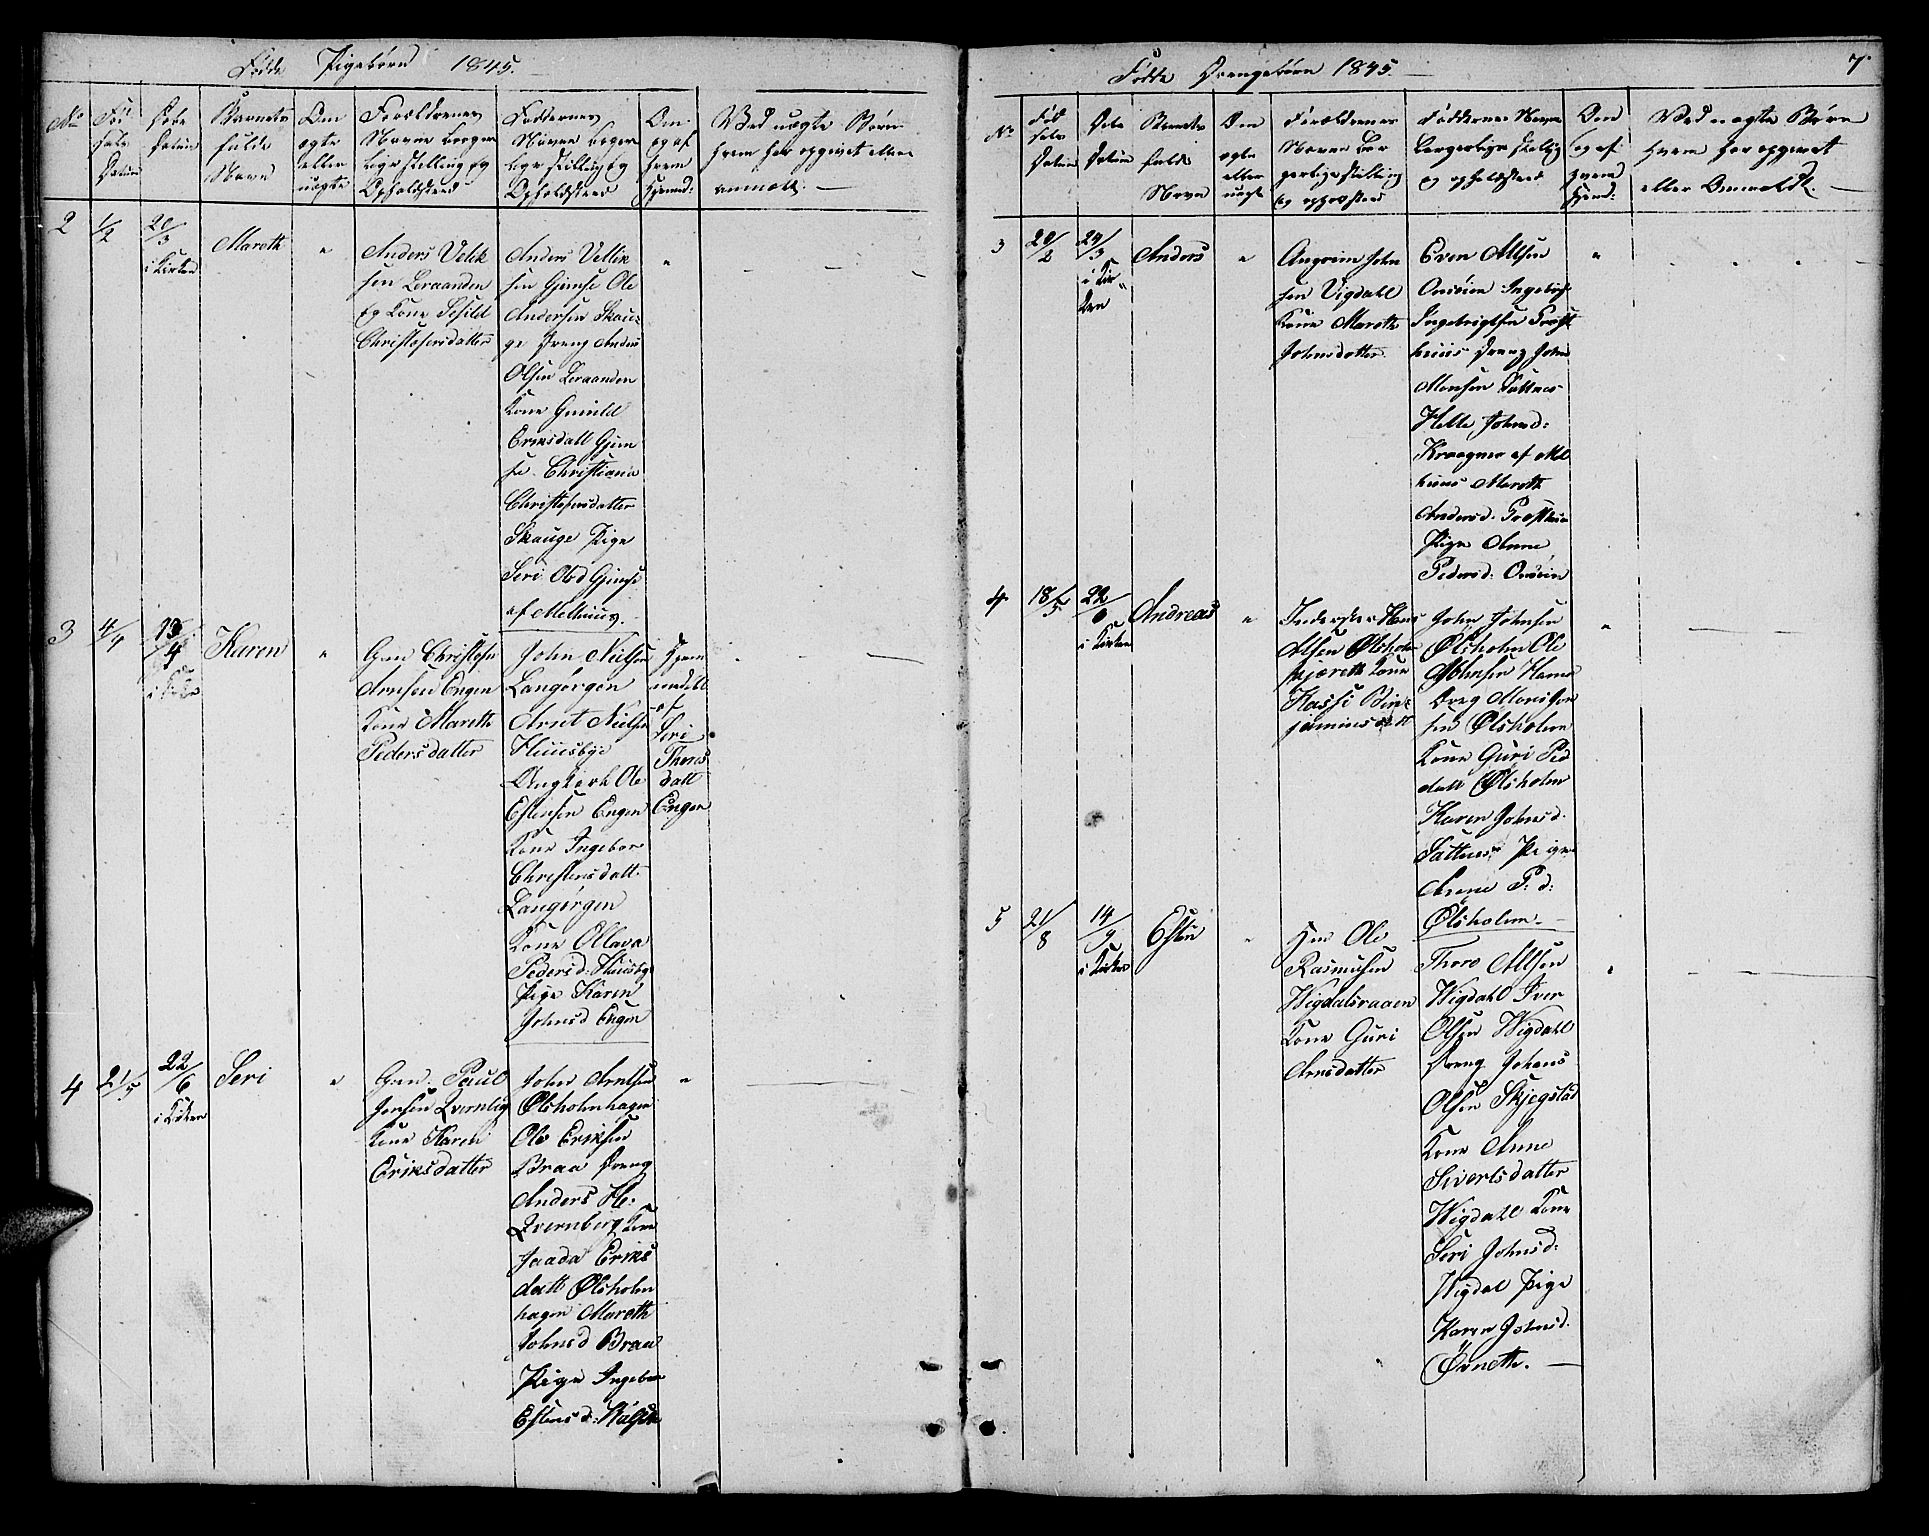 Fødde Pigebørn 1845.
No
Fødsels Datum
Døbe Datum
Barnets fulde Navn
Om ægte eller uægte
Forældrenes Navne borgerlige stilling og Opholdssted
Faddernes Navne borgerlige stilling og Opholdssted
Om og af hvem Hjemd:
Ved uægte Børn hvem har opgivet eller anmældt.
2
1/2
24/3
i Kirken
Mareth
"
Anders
sen Leraanden
og Kone Sesild
Christofersdatter
Anders
sen Gjimse Ole
Andersen Skau-
ge Dreng Anders
Olsen Leraanden
Kone Gunild
Eriksdatt Gjim
se Christiana
Christofersdatter
Skauge Pige
Seri Olsd Gjimse
af Melhuus.
"
3
4/4
13/4
i Kirken
Karen
"
Gm Christofer
Arnsen Engen
Kone Mareth
Pedersdatter
John Nielsen
Langørgen
Arnt Nielsen
Huusbye
Ungkarl Ole
Estensen Engen
Kone Ingebor
Christensdatt
Langørgen
Kone Ollava
Pedersd: Huusbye
Pige Karen
Johnsd Engen
Hjem
medebt
af
Seri
Thores
datt
Engen
4
21/5
22/6
i Kirken
Seri
"
Gm. Paul
Jensen Qvernlig
Kone Karen
Eriksdatter
John Arntsen
Ølsholmhagen
Ole Eriksen
Braa Dreng
Anders He.
Qvernberg Kone
Eriks
datt Ølsholm
hagen Mareth
Johnsd Braa
Pige Ingebor
Estensd:
"
Fødde Drengebørn 1845.
7.
No
Fødsels Datum
Døbe Datum
Barnets fulde Navn
Om ægte eller uægte
Forældrenes Navne borgerlige stilling og opholdssted
Faddernes Navne borgerlige stilling og opholdssted
Om og af hvem Hjemd:
Ved uægte Børn hvem har opgivet eller Anmældt.
3
20/2
24/3
i Kirken
Anders
"
Angrim John
sen Vigdahl
Kone Mareth
Johnsdatter
Even Allsen
Onsøien Ingebrigt
Ingebrigtsen Præst
huus Dreng John
Monsen
Johnsd:
af Mel
huus Mareth
Andersd. Præsthuus
Pige Anne
Pedersd: Onsøien
"
4
18/5
22/6
i Kirken
Andreas
"
Inderster Hans
Olsen Ølsholm
Kone
Benjaminsdatt
John Johnsen
Ølsholm Ole
Johnsen
Dreng
sen Ølsholm
Kone Guri Ped
datt Ølsholm
Karen Johnsd.
Pige
Arene P. d:
Ølsholm.
"
5
21/8
14/9
i Kirken
Esten
"
Hm Ole
Rasmusen
Wigdalsvaaen
Kone Guri
Arnsdatter
Thore Allsen
Wigdahl Iver
Olsen Wigdahl
Dreng Johans
Olsen Skjegstad
Kone Anne
Sivertsdatter
Wigdahl Kone
Seri Johnsd:
Wigdal Pige
Karen Johnsd.
Øvnette.
"